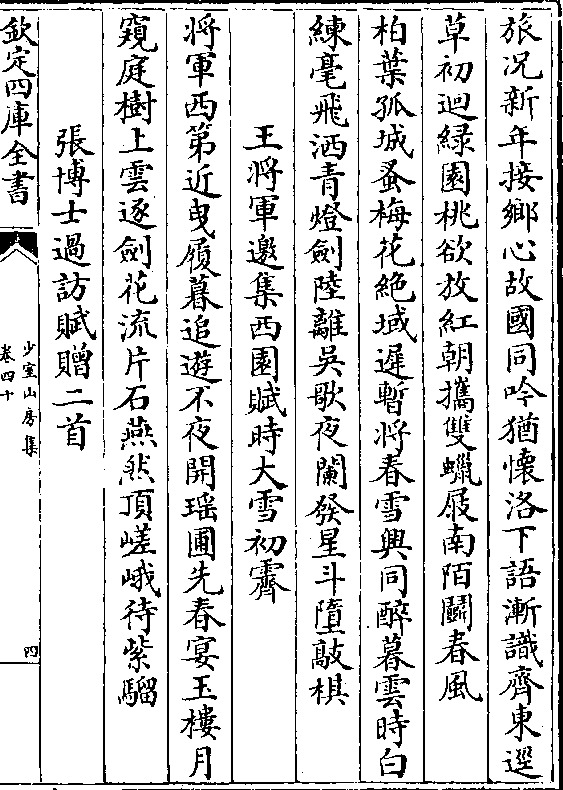 旅况新年接鄉心故國同吟猶懷洛下語漸識齊東逕
草初迴緑園桃欲放紅朝攜雙蠟屐南陌鬬春風
柏葉孤城蚤梅花絶域遲暫将春雪興同醉暮雲時白
練毫飛洒青燈劍陸離吳歌夜闌發星斗墮敲棋
王将軍邀集西園賦時大雪初霽
将軍西第近曳履暮追遊不夜開瑶圃先春宴玉樓月
窺庭樹上雲逐劍花流片石燕然頂嵯峨待紫騮
張博士過訪賦贈二首
欽定四庫全書
少室山房集
卷四十
四